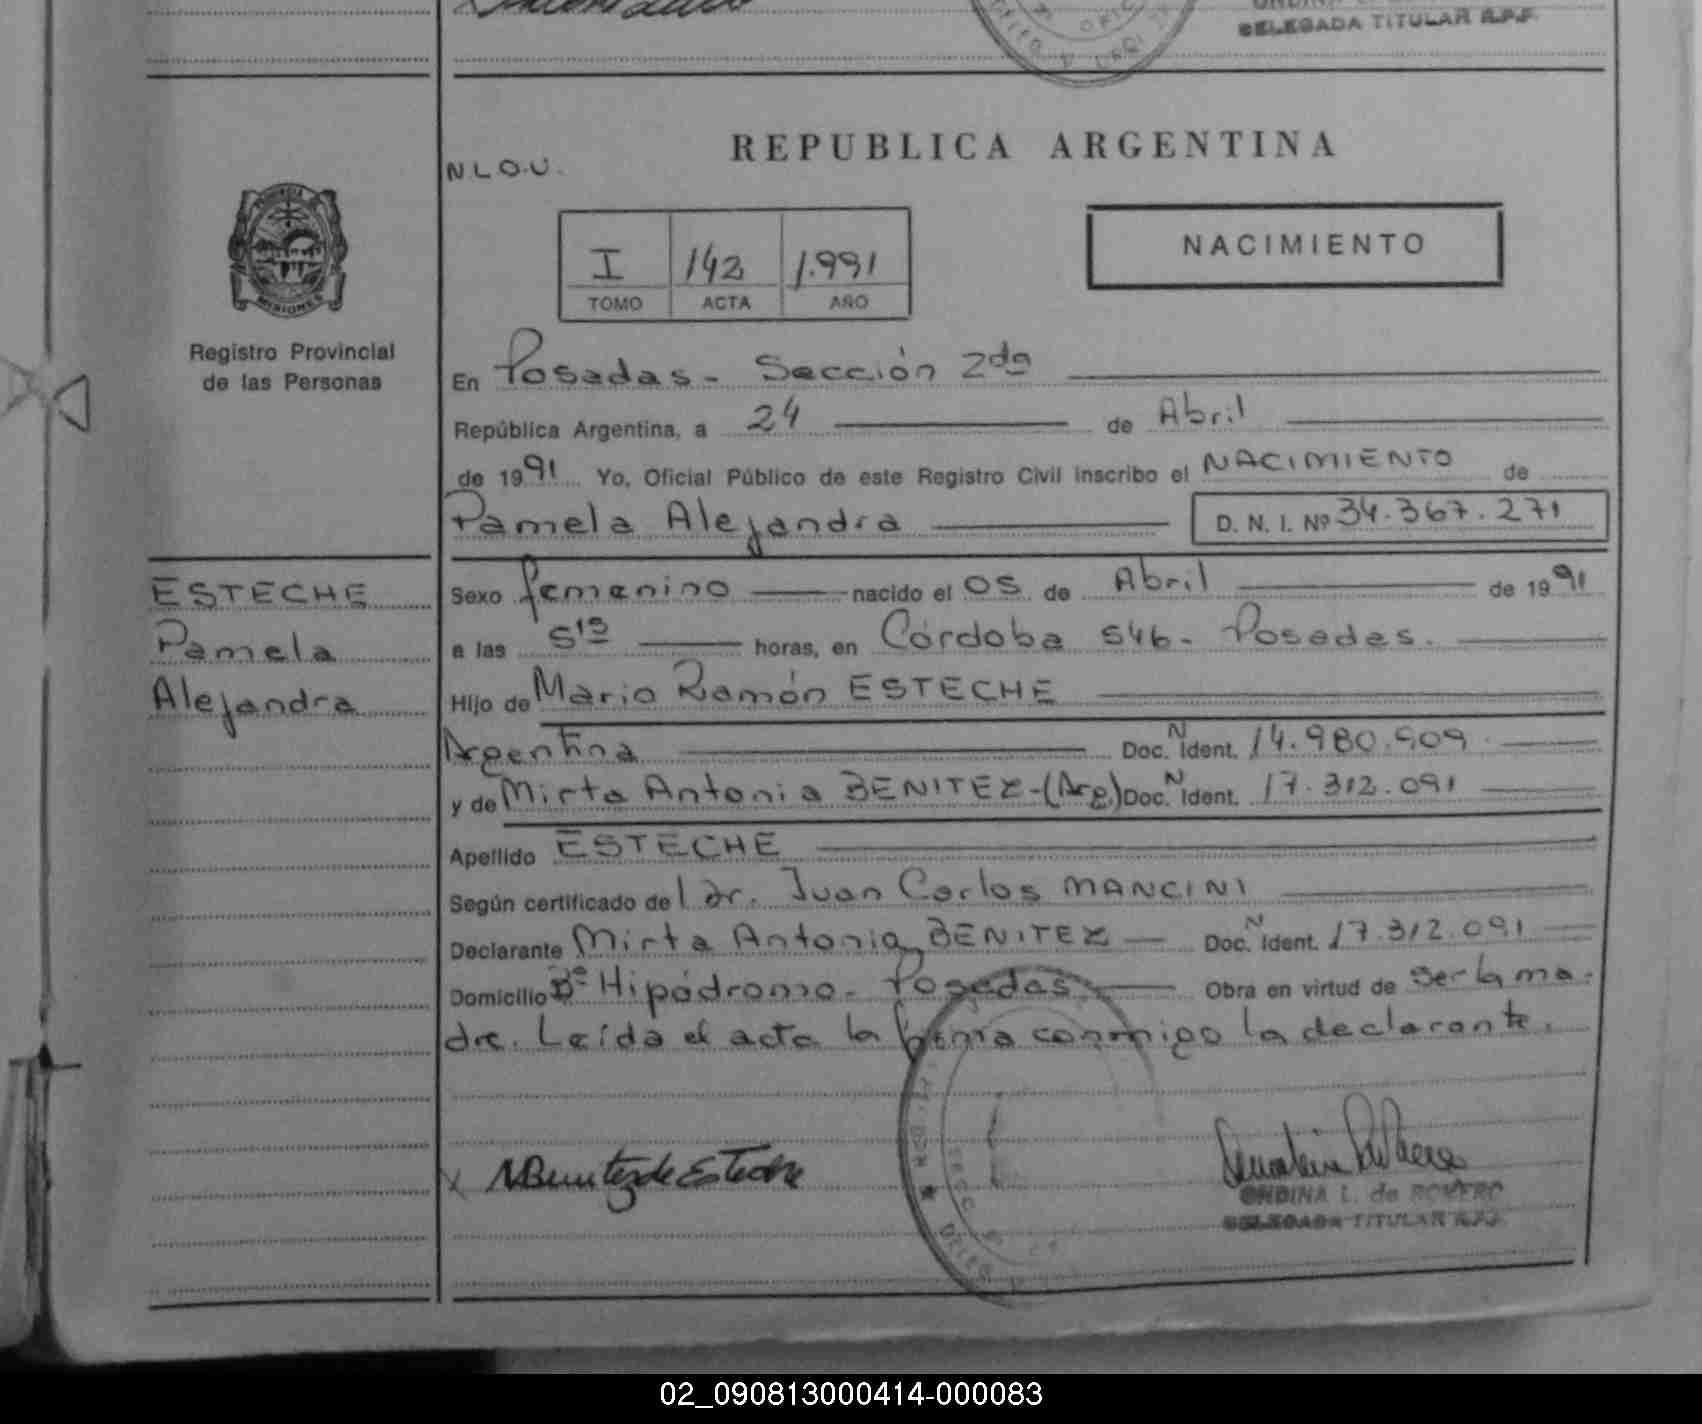 DELEGADA TITULAR R.P.P.
REPUBLICA ARGENTINA
N.L.O.U.
PROVINCIA
MISIONES
I 142 1.991
TOMO ACTA AÑO
NACIMIENTO
Registro Provincial
de las Personas
En Posadas - Sección 2da
República Argentina, a 24 de Abril
de 1991 Yo, Oficial Público de este Registro Civil inscribo el NACIMIENTO de
Pamela Alejandra D. N. I. Nº 34.367.271
ESTECHE
Pamela
Alejandra
Sexo femenino nacido el 05 de Abril de 1991
a las 5 15 horas, en Córdoba 546 - Posadas.
Hijo de Mario Ramón ESTECHE
Argentina Doc. N Ident. 14.980.909
y de Mirta Antonia BENITEZ - (Arg.) Doc. N Ident. 17.312.091
Apellido ESTECHE
Según certificado del dr. Juan Carlos MANCINI
Declarante Mirta Antonia BENITEZ - Doc. N Ident. 17.312.091
Domicilio Bº Hipódromo - Posadas. Obra en virtud de ser la ma-
dre. Leída el acta la firma conmigo la declarante.
X MBenitez de Esteche
ONDINA L. de ROMERO
DELEGADA TITULAR R.P.P.
02_090813000414-000083